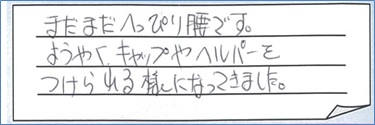 まだまだへっぴり腰です。
ようやく、キャップやヘルパーを
つけられる様になってきました。